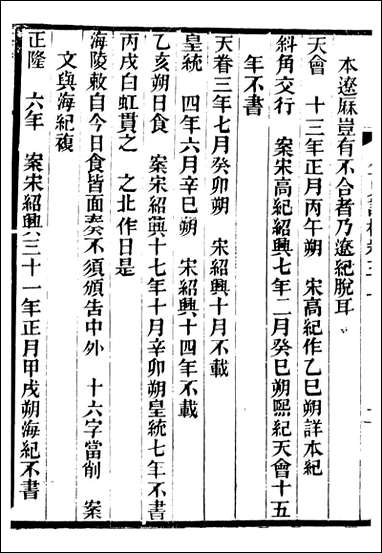 本遼厤豈有不合者乃遼紀脫耳
天會　十三年正月丙午朔　宋高紀作乙巳朔詳本紀
斜角交行　案宋高紀紹興七年二月癸巳朔熙紀天會十五
年不書
天眷三年七月癸卯朔　宋紹興十月不載
皇統　四年六月辛巳朔　宋紹興十四年不載
乙亥朔日食　案宋紹興十七年十月辛卯朔皇統七年不書
丙戌白虹貫之　之北作日是
海陵敕自今日食皆面奏不須頒告中外　十六字當削　案
文與海紀複
正隆　六年　案宋紹興三十一年正月甲戌朔海紀不書